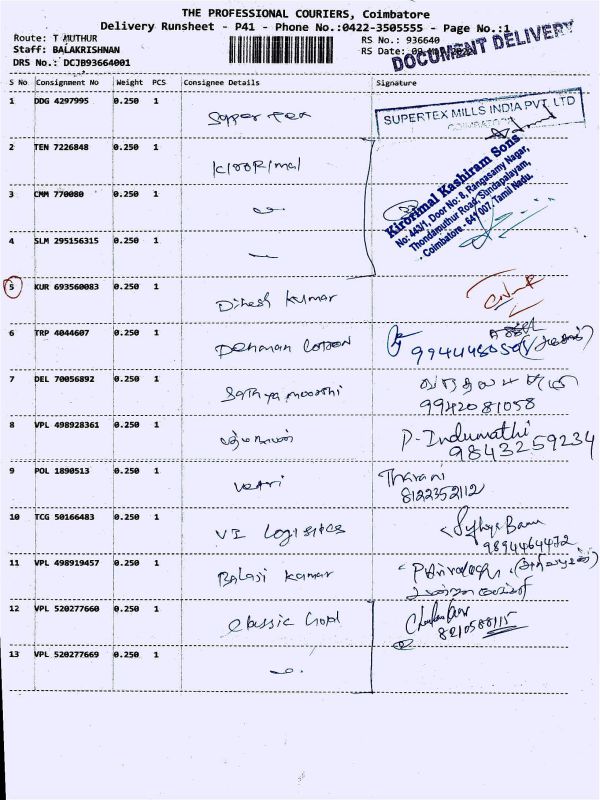 THE PROFESSIONAL COURIERS, Coimbatore
Delivery Runsheet - P41 - Phone No.:0422-3505555 - Page No.:1
Route: T MUTHUR
RS No.: 936640
Staff: BALAKRISHNAN
RS Date:
DOCUMENT DELIVERY
DRS No.: DCJB93664001
S No Consignment No Weight PCS Consignee Details Signature
1 DDG 4297995 0.250 1 Super Tex
SUPERTEX MILLS INDIA PVT. LTD
COIMBATORE
2 TEN 7226848 0.250 1 KIOORImal
Kirorimal Kashiram Sons
No: 443/1, Door No: 8, Rangasamy Nagar,
Thondamuthur Road, Sundapalayam,
Coimbatore - 641 007. Tamil Nadu.
3 CMM 770080 0.250 1
4 SLM 295156315 0.250 1
5 KUR 693560083 0.250 1 Dinesh Kumar
6 TRP 4044607 0.250 1
7 DEL 70056892 0.250 1 Sathyamoorthi
9942081058
8 VPL 498928361 0.250 1 P-Indumathi
9843259234
9 POL 1890513 0.250 1 Vetri Tharani
8122352112
10 TCG 50166483 0.250 1 VI Logistics
9894464472
11 VPL 498919457 0.250 1 Balaji Kumar
12 VPL 520277660 0.250 1 Classic Gold
8210588115
13 VPL 520277669 0.250 1